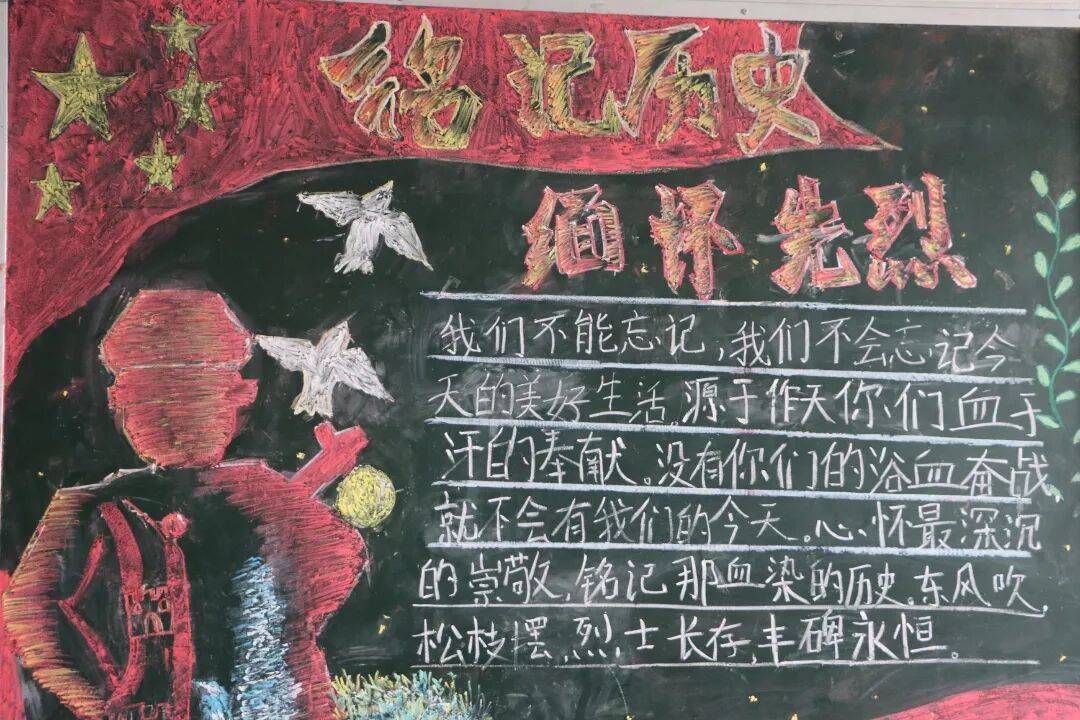 铭记历史
缅怀先烈
我们不能忘记,我们不会忘记今
天的美好生活,源于作天你们血于
汗的奉献。没有你们的浴血奋战,
就不会有我们的今天。心怀最深沉
的崇敬,铭记那血染的历史。东风吹,
松枝摆,烈士长存,丰碑永恒。